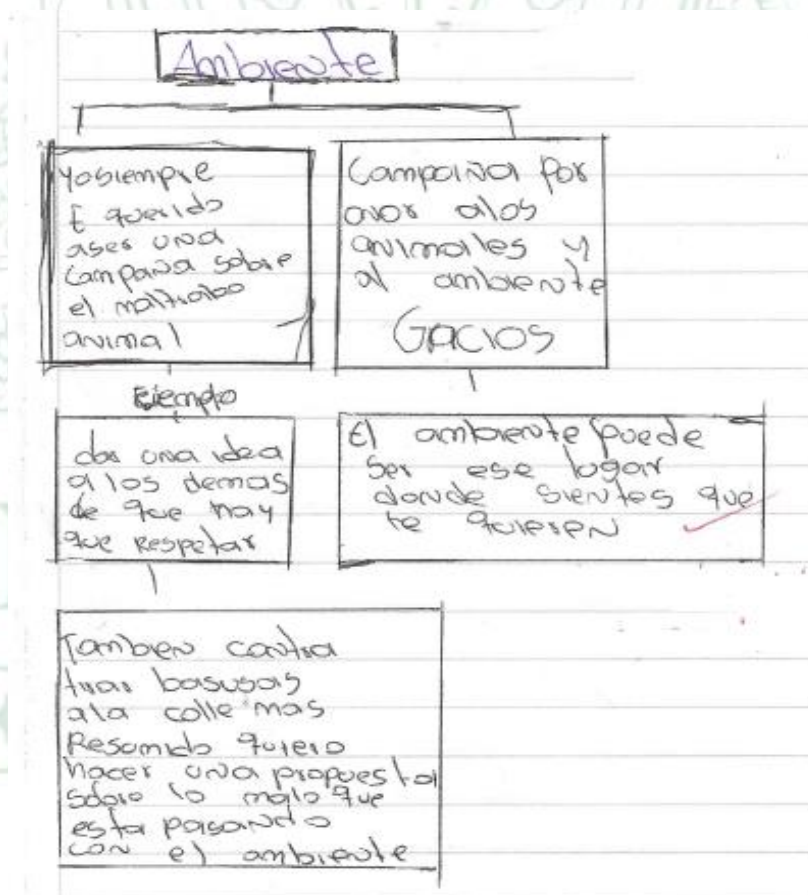 Ambiente
Yo siempre
E querido
aser una
campaña sobre
el maltrabo
animal
Campaiña por
avor alos
animales y
al ambiente
Gacios
Ejemplo
das una idea
a los demas
de que hay
que Respetar
El ambiente puede
ser ese lugar
donde sientes que
te quieren
Tambien contra
tiras basusas
ala calle mas
Resumido quiero
hacer una propuesta
sobre lo malo que
esta pasando
con el ambiente